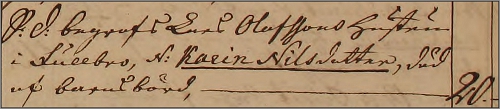 S: D: begrofs Lars Olofssons Hustru
i Fällbro, N: Karin Nilsdotter, död
af barnsbörd, 20.